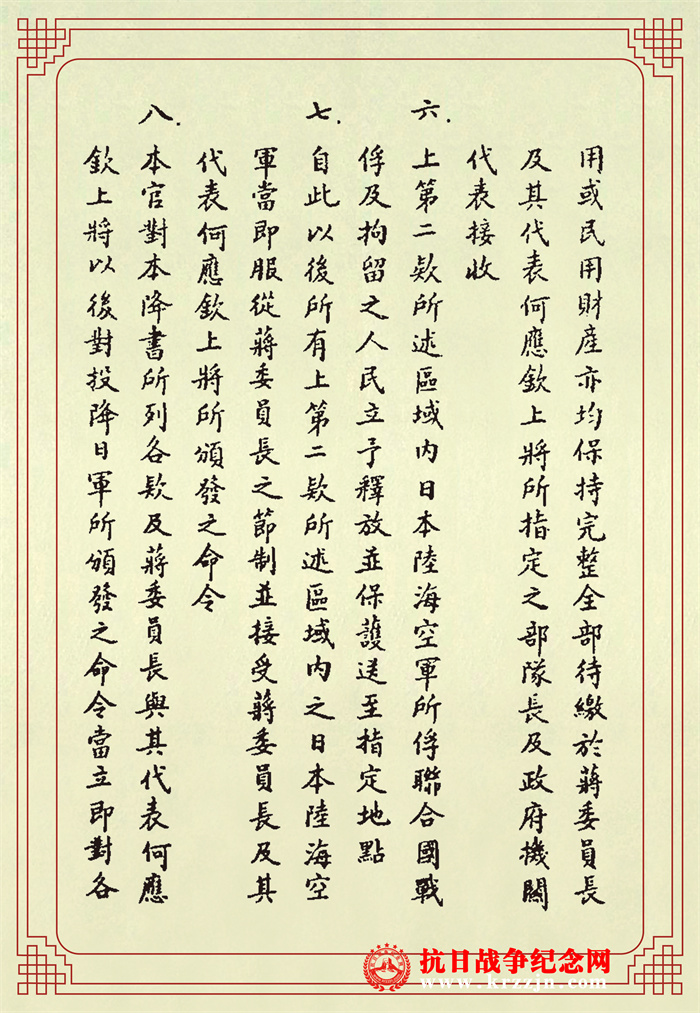 用或民用財產亦均保持完整全部待繳於蔣委員長
及其代表何應欽上將所指定之部隊長及政府機關
代表接收
六.上第二款所述區域內日本陸海空軍所俘聯合國戰
俘及拘留之人民立予釋放並保護送至指定地點
七.自此以後所有上第二款所述區域內之日本陸海空
軍當即服從蔣委員長之節制並接受蔣委員長及其
代表何應欽上將所頒發之命令
八.本官對本降書所列各款及蔣委員長與其代表何應
欽上將以後對投降日軍所頒發之命令當立即對各
抗日战争纪念网
www.krzzjn.com